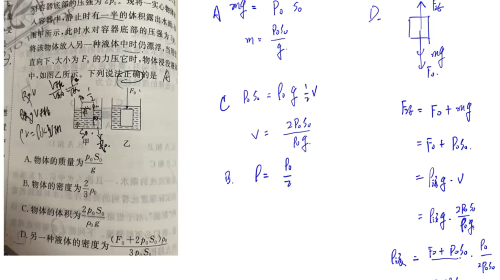 对容器底部的压强为2p₀。现将一实心物体
人容器中,静止时有一半的体积露出水
图甲所示,此时水对容器底部的压强为
将该物体放入另一种液体中时仍漂浮,
直向下、大小为F₀的力压它时,物体
中,如图乙所示。下列说法正确的是
F₀
甲 乙
A.物体的质量为p₀S₀/g
B.物体的密度为2/3 ρ₀
C.物体的体积为2p₀S₀/ρ₀g
D.另一种液体的密度为(F₀+2p₀S₀)ρ₀/3p₀S₀
A mg = P₀ S₀
m = P₀S₀/g
C P₀S₀ = ρ₀ g 1/2 V
V = 2P₀S₀/ρ₀g
B. ρ = ρ₀/2
D.
F浮
mg
F₀
F浮 = F₀ + mg
= F₀ + P₀S₀
= ρ液g · V
= ρ液g · 2P₀S₀/ρ₀g
ρ液 = F₀ + P₀S₀ · ρ₀/2P₀S₀